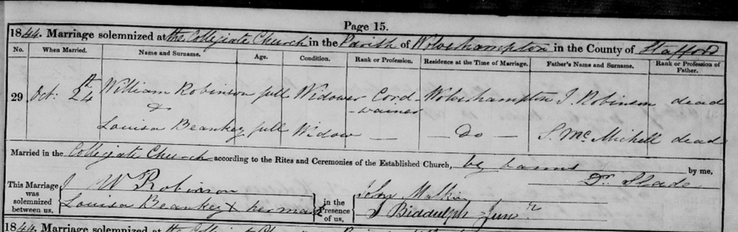 Page 15.
1844. Marriage solemnized at the Collegiate Church in the Parish of Wolverhampton in the County of Stafford
No. When Married. Name and Surname. Age. Condition. Rank or Profession. Residence at the Time of Marriage. Father's Name and Surname. Rank or Profession of Father.
29 Oct. 24 William Robinson full Widower Cordwainer Wolverhampton J. Robinson dead
&
Louisa Beankey full Widow — Do — S. Mc Michell dead
Married in the Collegiate Church according to the Rites and Ceremonies of the Established Church, by banns by me,
Dr. Slade
This Marriage was solemnized between us, W Robinson
Louisa Beankey x her mark
in the Presence of us, John
J Biddulph Junr
1844. Marriage solemnized at the Collegiate in the Parish of in the County of